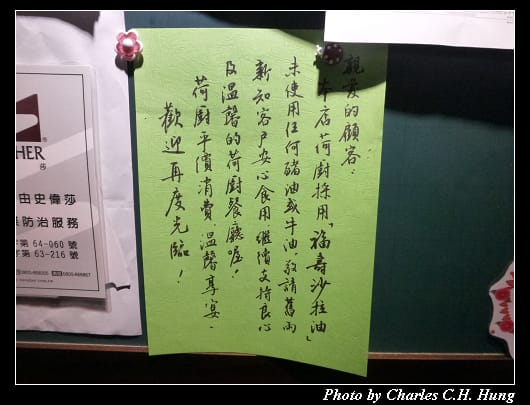 親愛的顧客:
本店荷廚採用「福壽沙拉油」
未使用任何豬油或牛油,敬請舊雨
新知客戶安心食用,繼續支持良心
及溫馨的荷廚餐廳喔!
荷廚平價消費、溫馨享宴。
歡迎再度光臨!
HER
由史偉莎
防治服務
字第 64-060 號
字第 63-216 號
Photo by Charles C.H. Hung